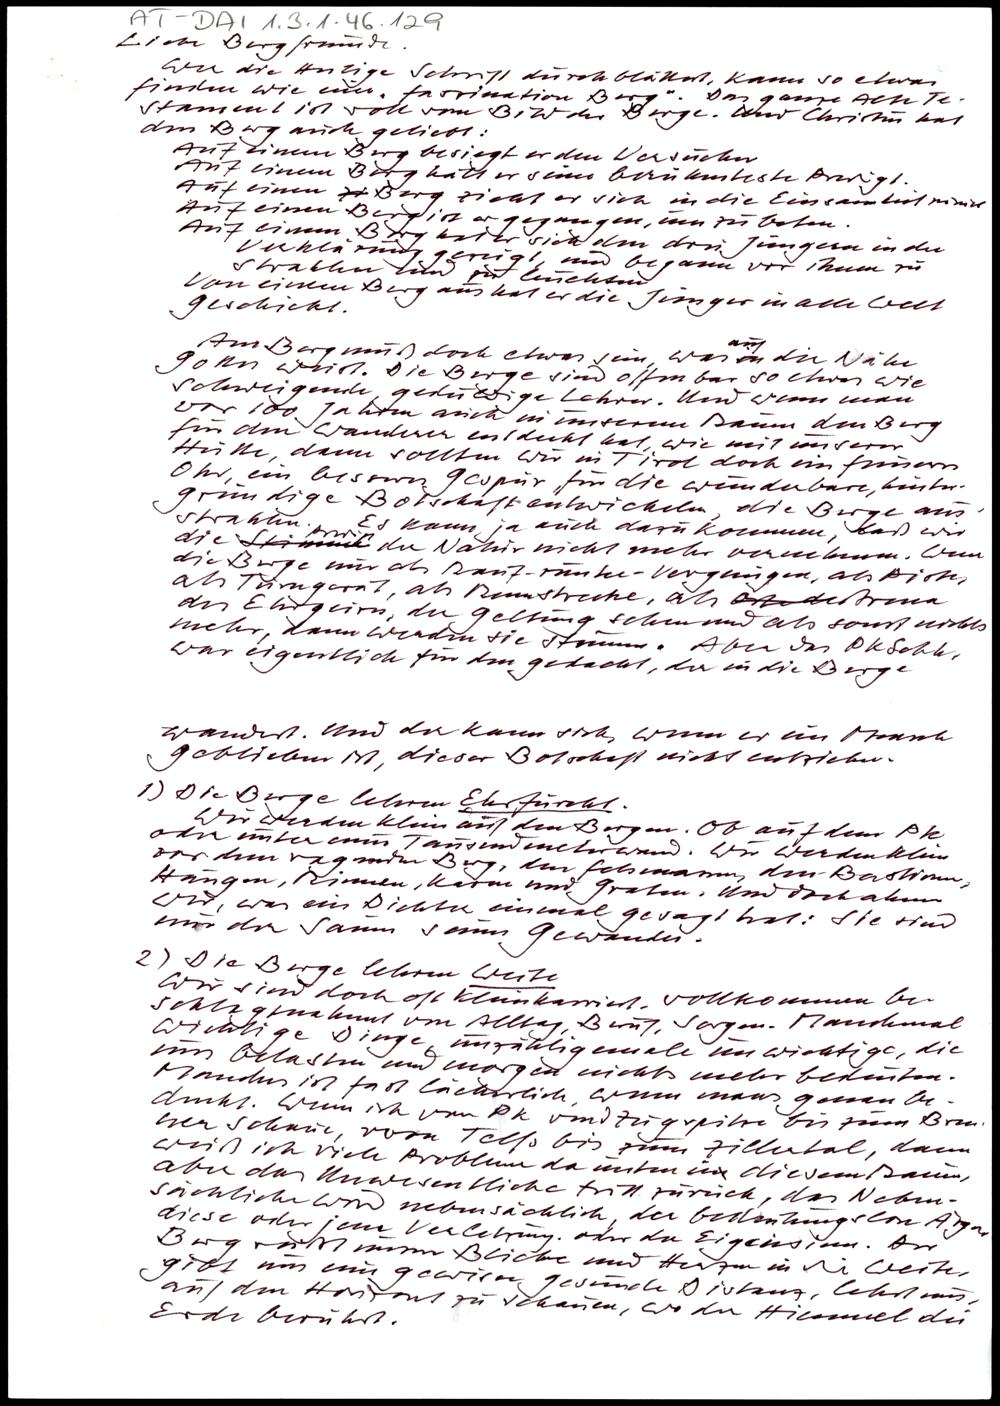 AT-DAI 1.3.1.46.129
Liebe Bergfreunde.
Wer die Heilige Schrift durchblättert, kann so etwas
finden wie eine "Faszination Berg". Das ganze Alte Te-
stament ist voll vom Bild der Berge. Und Christus hat
den Berg auch geliebt:
Auf einem Berg besiegt er den Versucher
Auf einem Berg hält er seine berühmteste Predigt.
Auf einen Berg zieht er sich in die Einsamkeit zurück
Auf einen Berg ist er gegangen, um zu beten.
Auf einem Berg hat er sich den drei Jüngern in der
Verklärung gezeigt, und begann vor ihnen zu
strahlen und zu leuchten
Von einem Berg aus hat er die Jünger in alle Welt
geschickt.
Am Berg muß doch etwas sein, was auf die Nähe
Gottes weist. Die Berge sind offenbar so etwas wie
schweigende, geduldige Lehrer. Und wenn man
vor 100 Jahren auch in unserem Raum den Berg
für den Wanderer entdeckt hat, wie mit unserer
Hütte, dann sollten wir in Tirol doch ein feineres
Ohr, ein besseres Gespür für die wunderbare, hinter-
gründige Botschaft entwickeln, die Berge aus-
strahlen. Es kann ja auch dazu kommen, daß wir
die Stimme der Natur nicht mehr vernehmen. Wenn
die Berge nur als Rauf-runter-Vergnügen, als Piste,
als Turngerät, als Rennstrecke, als Arena
des Ehrgeizes, der Geltung sehen und als sonst nichts
mehr, dann werden sie stumm. Aber das PKSchh.
war eigentlich für den gedacht, der in die Berge
wandert. Und der kann sich, wenn er ein Mensch
geblieben ist, dieser Botschaft nicht entziehen.
1) Die Berge lehren Ehrfurcht.
Wir werden klein auf den Bergen. Ob auf dem PK
oder unter einer Tausendmeterwand. Wir werden klein
vor dem ragenden Berg, den Felsmauern, den Bastionen,
Hängen, Rinnen, Karen und Graten. Und doch ahnen
wir, was ein Dichter einmal gesagt hat: Sie sind
nur der Saum seines Gewandes.
2) Die Berge lehren Weite
Wir sind doch oft kleinkarriert, vollkommen be-
schlagnahmt von Alltag, Beruf, Sorgen. Manchmal
wichtige Dinge, unzähligemale unwichtige, die
uns belasten und morgen nichts mehr bedeuten.
Manches ist fast lächerlich, wenn mans genau be-
denkt. Wenn ich vom PK und Zugspitze bis zum Bren-
ner schaue, vom Telfs bis zum Zillertal, dann
weiß ich viele Probleme da unten in diesem Raum,
aber das Unwesentliche tritt zurück, das Neben-
sächliche wird nebensächlich, der bedeutungslose Ärger,
diese oder jene Verletzung oder der Eigensinn. Der
Berg reißt unsere Blicke und Herzen in die Weite,
gibt uns eine gewisse, gesunde Distanz, lehrt uns,
auf den Horizont zu schauen, wo der Himmel die
Erde berührt.